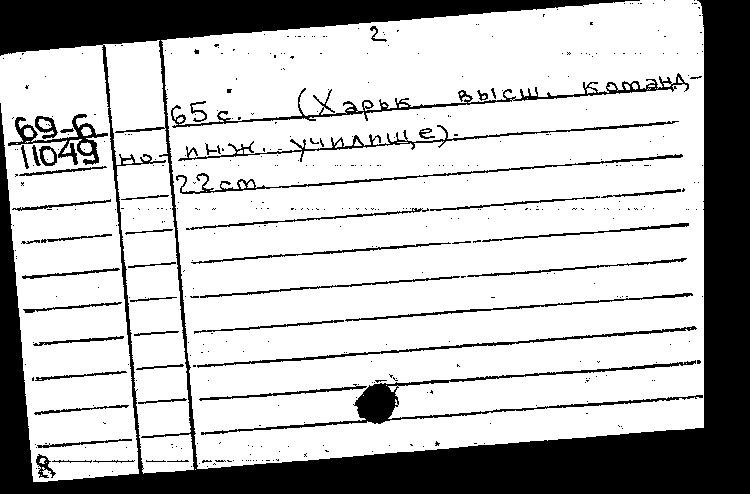 2
65 с. (Харьк. высш. команд-
69-6
11049
но-инж. училище).
22 ст.
8